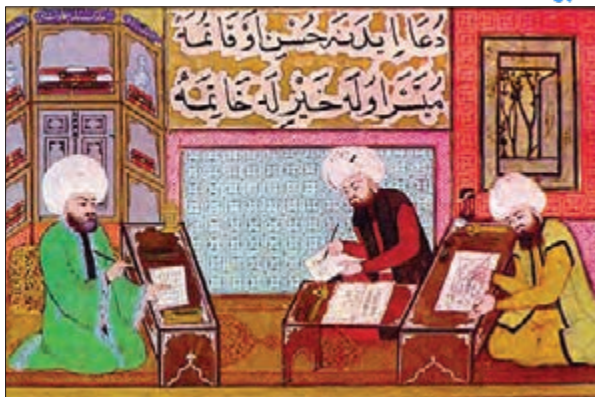 دُعَا ایدَنَه حُسْنِ اوقَاتمَهْ
مُیَسَّر اوله خَیْرِ لَه خَاتِمَهْ